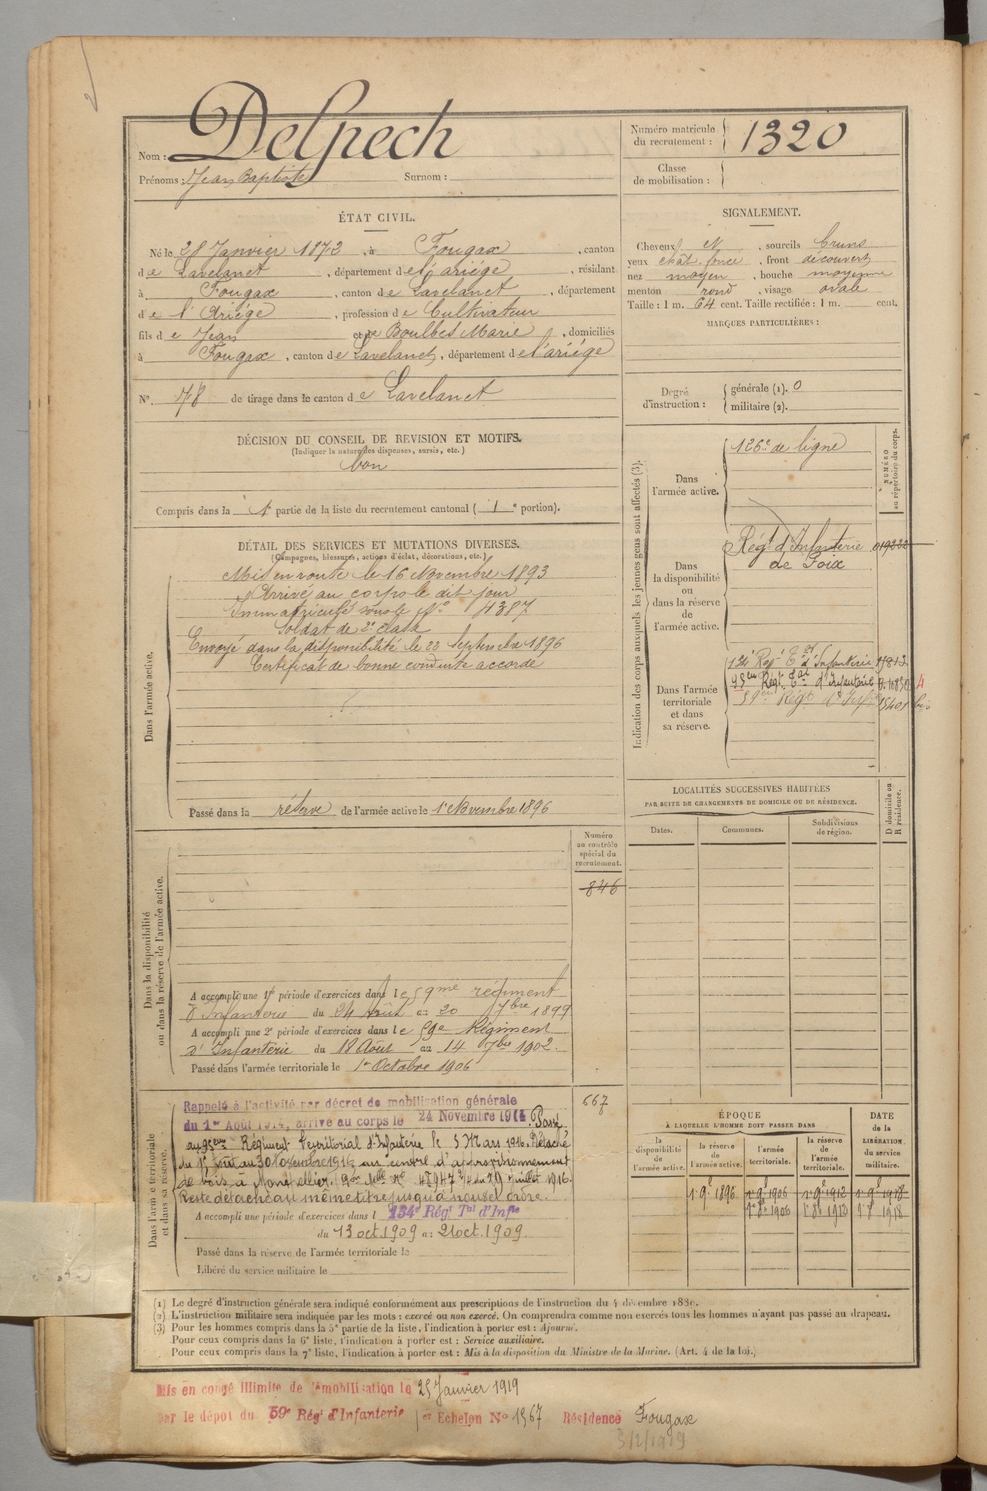 Nom : Delpech
Prénoms : Jean Baptiste Surnom :
Numéro matricule du recrutement : 1320
Classe de mobilisation :
ÉTAT CIVIL.
Né le 28 Janvier 1872, à Fougax, canton
de Lavelanet, département de l'ariége, résidant
à Fougax, canton de Lavelanet, département
de l'Ariége, profession de Cultivateur
fils de Jean et de Boulbes Marie, domiciliés
à Fougax, canton de Lavelanet, département de l'ariége
N° 78 de tirage dans le canton de Lavelanet
SIGNALEMENT.
Cheveux N, sourcils bruns
yeux chât. foncé, front découvert
nez moyen, bouche moyenne
menton rond, visage ovale
Taille : 1 m. 64 cent. Taille rectifiée : 1 m. cent.
MARQUES PARTICULIÈRES :
Degré d'instruction : générale (1). 0
militaire (2).
DÉCISION DU CONSEIL DE REVISION ET MOTIFS.
(Indiquer la nature des dispenses, sursis, etc.)
bon
Compris dans la 1e partie de la liste du recrutement cantonal (1e portion).
DÉTAIL DES SERVICES ET MUTATIONS DIVERSES.
(Campagnes, blessures, actions d'éclat, décorations, etc.)
Dans l'armée active.
Mis en route le 16 Novembre 1893
Arrivé au corps le dit jour
Immatriculé sous le N° 4387
Soldat de 2e classe
Envoyé dans la disponibilité le 22 Septembre 1896
Certificat de bonne conduite accordé
Passé dans la réserve de l'armée active le 1er Novembre 1896
Indication des corps auxquels les jeunes gens sont affectés (3).
NUMÉRO au répertoire du corps.
Dans l'armée active.
126e de ligne
Dans la disponibilité ou dans la réserve de l'armée active.
Régt d'Infanterie
de Foix
Dans l'armée territoriale et dans sa réserve.
134e Régt Tal d'Infanterie
95eme Régt Tal d'Infanterie
59eme Régt d'Inf
LOCALITÉS SUCCESSIVES HABITÉES
PAR SUITE DE CHANGEMENTS DE DOMICILE OU DE RÉSIDENCE.
Dates. Communes. Subdivisions de région. D domicile ou R résidence.
Numéro au contrôle spécial du recrutement.
846
Dans la disponibilité ou dans la réserve de l'armée active.
A accompli une 1re période d'exercices dans le 59me régiment
d'Infanterie du 24 Août au 20 7bre 1899
A accompli une 2e période d'exercices dans le 59e Régiment
d'Infanterie du 18 Août au 14 7bre 1902.
Passé dans l'armée territoriale le 1er Octobre 1906
667
Dans l'armée territoriale et dans sa réserve.
Rappelé à l'activité par décret de mobilisation générale
du 1er Août 1914, arrivé au corps le 24 Novembre 1914. Passé
au 95eme Régiment Territorial d'Infanterie le 5 Mars 1916. Détaché
au centre d'approvisionnement
de bois à Montpellier.
Reste détaché au même titre jusqu'à nouvel ordre.
A accompli une période d'exercices dans l 134e Régt Tal d'Infie
du 13 oct. 1909 au 21 oct. 1909.
Passé dans la réserve de l'armée territoriale le
Libéré du service militaire le
ÉPOQUE
À LAQUELLE L'HOMME DOIT PASSER DANS
la disponibilité de l'armée active. la réserve de l'armée active. l'armée territoriale. la réserve de l'armée territoriale.
DATE de la LIBÉRATION du service militaire.
1 9e 1896 1 9e 1906 1 9e 1912 1 9e 1918
1 8e 1906 1 8e 1913 1 8e 1918
(1) Le degré d'instruction générale sera indiqué conformément aux prescriptions de l'instruction du 4 décembre 1889.
(2) L'instruction militaire sera indiquée par les mots : exercé ou non exercé. On comprendra comme non exercés tous les hommes n'ayant pas passé au drapeau.
(3) Pour les hommes compris dans la 5e partie de la liste, l'indication à porter est : Ajourné.
Pour ceux compris dans la 6e liste, l'indication à porter est : Service auxiliaire.
Pour ceux compris dans la 7e liste, l'indication à porter est : Mis à la disposition du Ministre de la Marine. (Art. 4 de la loi.)
Mis en congé illimité de démobilisation le 25 Janvier 1919
par le dépôt du 59e Régt d'Infanterie 1er Echelon N° 1567 Résidence Fougax